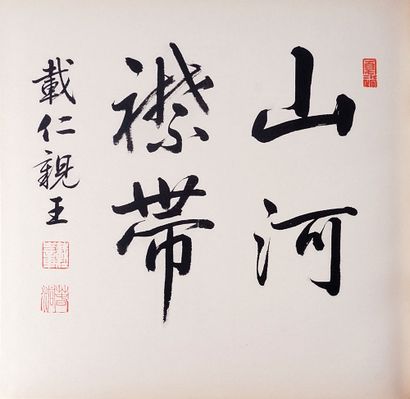 山河
襟帯
載仁親王